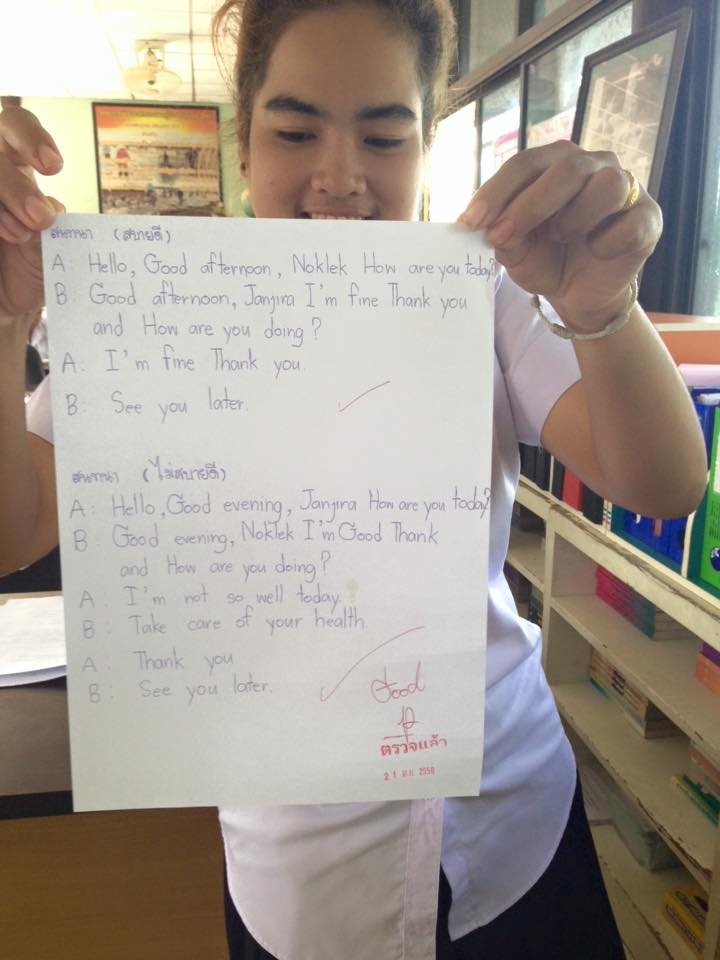 สนทนา (สบายดี)
A: Hello, Good afternoon, Noklek How are you today?
B: Good afternoon, Janjira I'm fine Thank you
and How are you doing?
A: I'm fine Thank you.
B: See you later.
สนทนา (ไม่สบายดี)
A: Hello, Good evening, Janjira How are you today?
B: Good evening, Noklek I'm Good Thank
and How are you doing?
A: I'm not so well today.
B: Take care of your health.
A: Thank you
B: See you later.
Good
ตรวจแล้ว